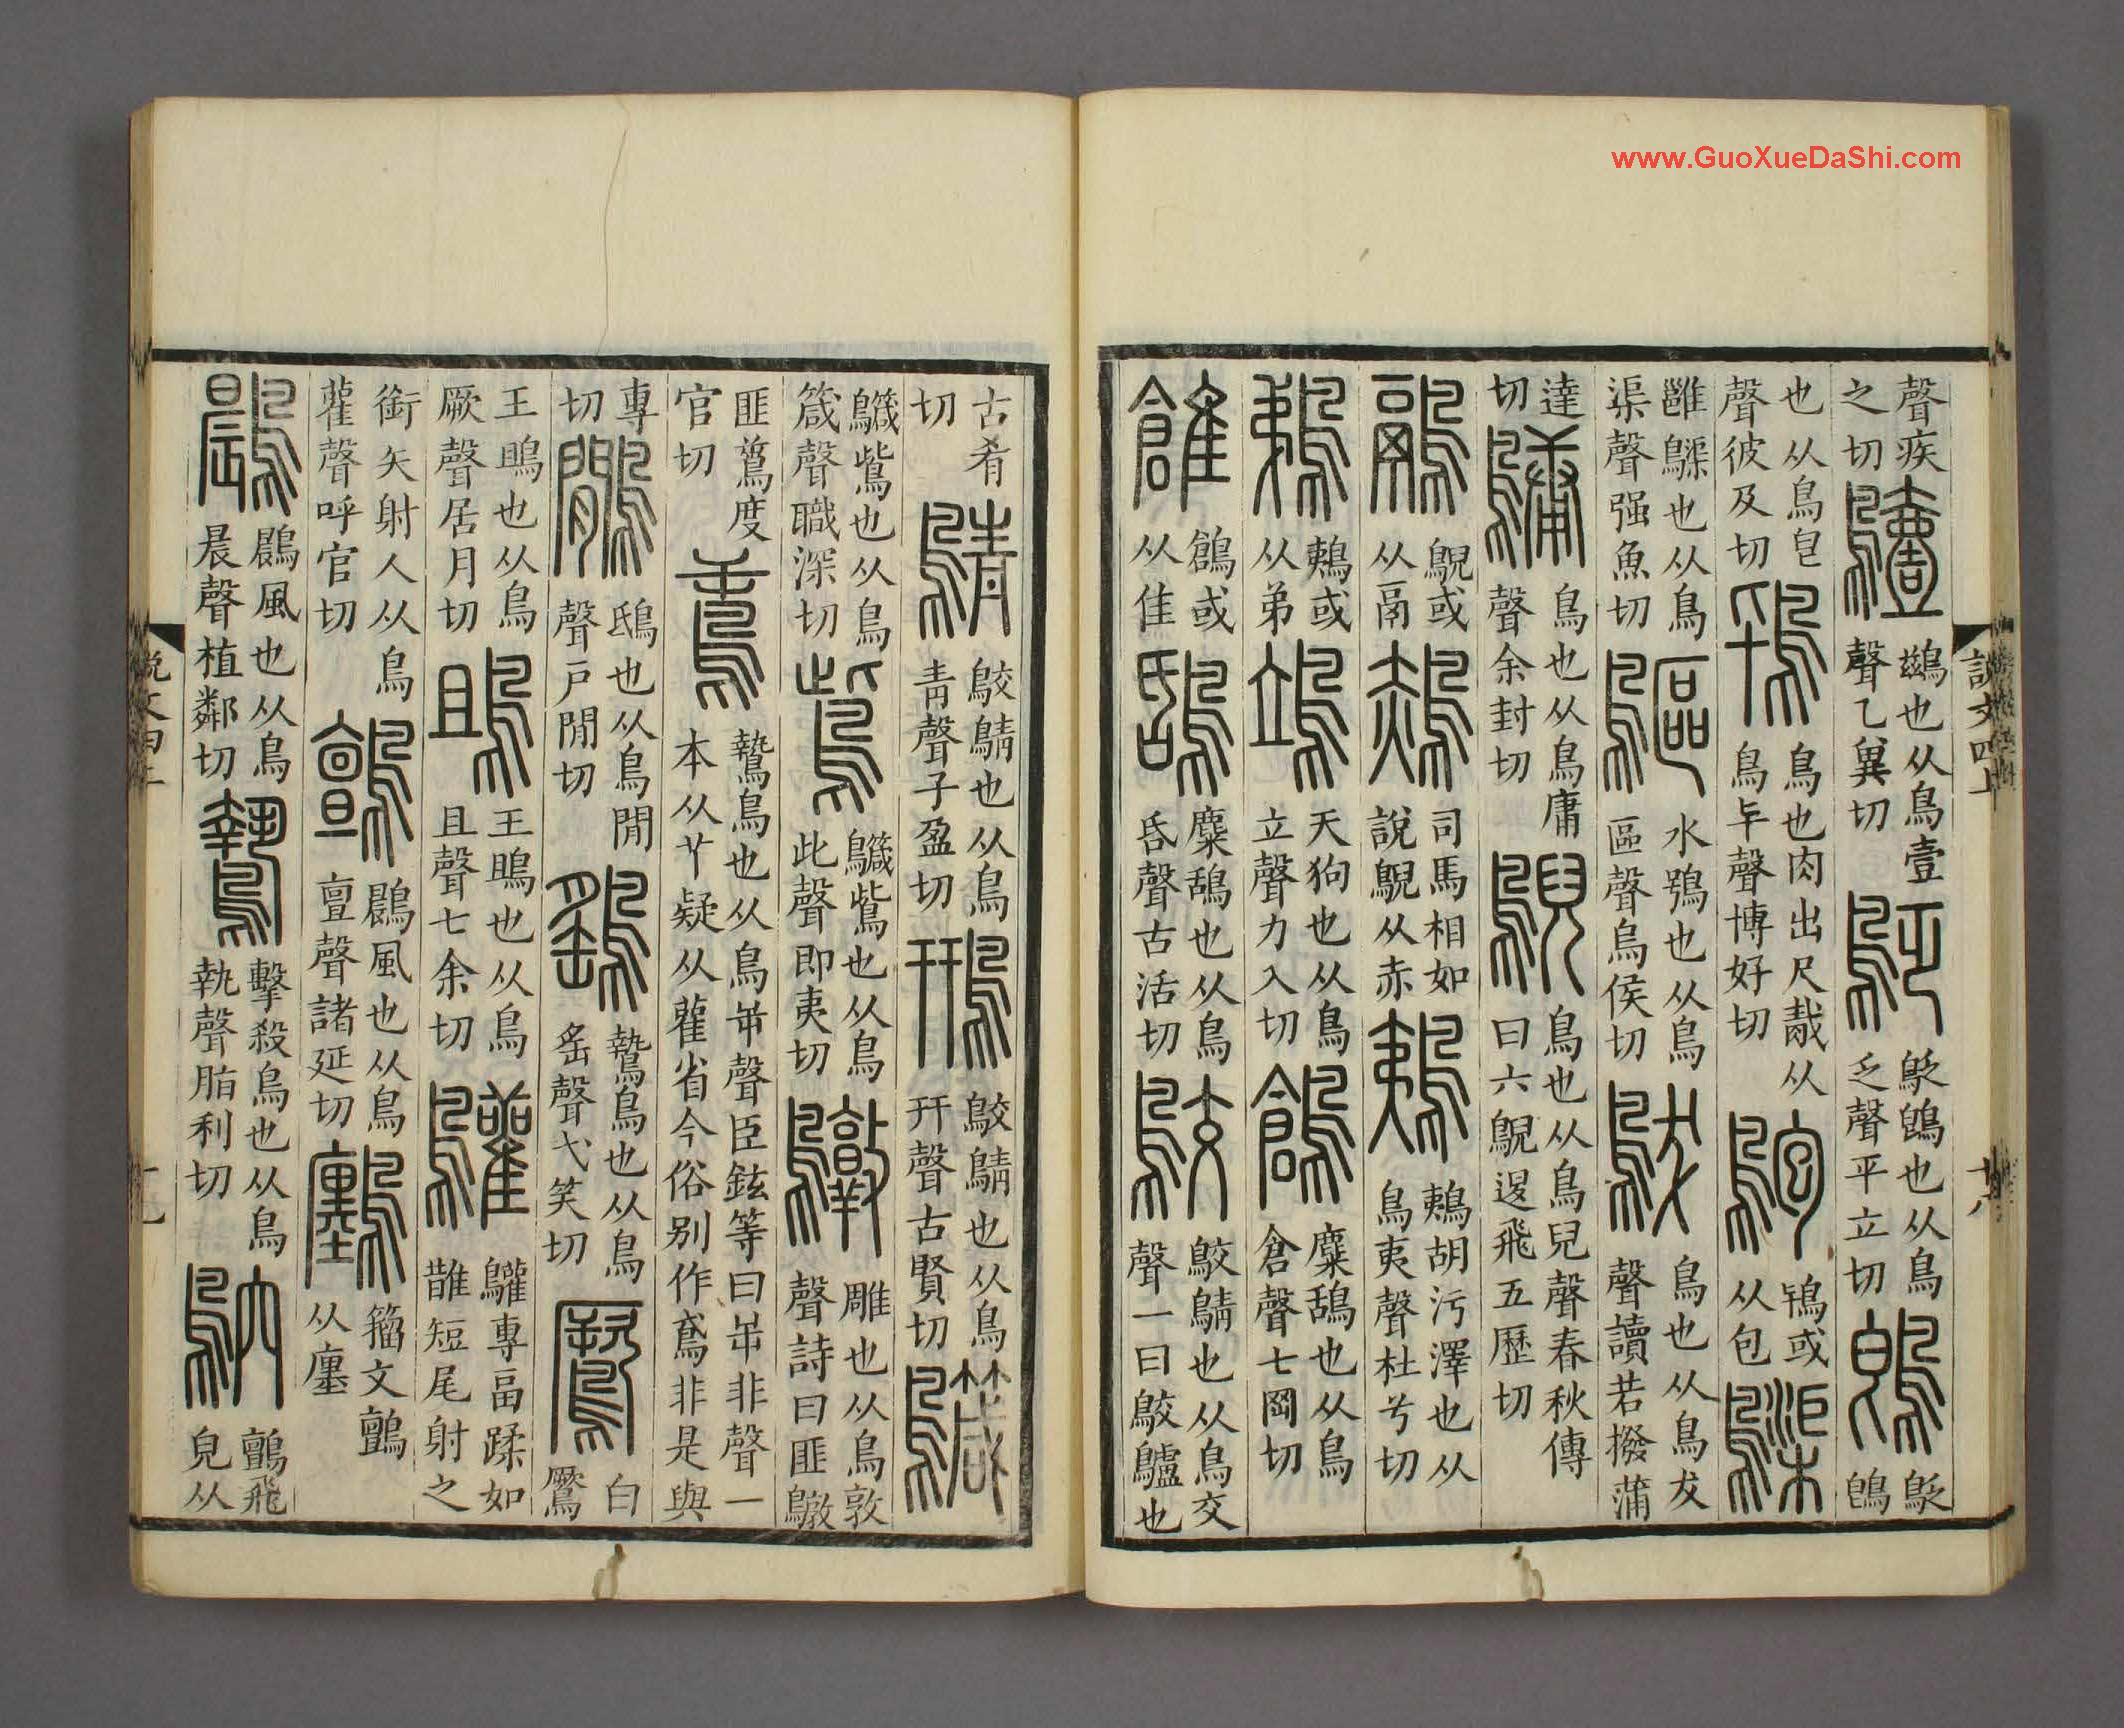 聲疾之切 鷧 鷀也从鳥壹聲乙冀切 鴔 鴔鵖也从鳥乏聲平立切 鵖 鴔鵖
也从鳥皀聲彼及切 鴇 鳥也肉出尺胾从鳥𠤏聲博好切 鴇或从包
雝也从鳥渠聲强魚切 鷗 水鴞也从鳥區聲烏侯切 鳥也从鳥犮聲讀若撥蒲
達切 鷛 鳥也从鳥庸聲余封切 鶂 鳥也从鳥兒聲春秋傳曰六鶂退飛五歷切
鷊 鶂或从鬲 司馬相如說鶂从赤 鴺 鴺胡污澤也从鳥夷聲杜兮切
鵜 鴺或从弟 鴗 天狗也从鳥立聲力入切 鶬 麋鴰也从鳥倉聲七岡切
鶬或从隹 鴰 麋鴰也从鳥昏聲古活切 鵁 鵁鶄也从鳥交聲一曰鵁鸕也
古肴切 鶄 鵁鶄也从鳥青聲子盈切 鳽 鵁鶄也从鳥幵聲古賢切 鱵
鱵鴜也从鳥箴聲職深切 鴜 鴜也从鳥此聲即夷切 鷻 雕也从鳥敦聲詩曰匪鷻
匪鳶度官切 鳶 鷙鳥也从鳥屰聲臣鉉等曰屰非聲一本从丫疑从雚省今俗别作鳶非是與
專切 鷳 鴟也从鳥閒聲戶閒切 鷂 鷙鳥也从鳥䍃聲弋笑切 鷢 白鷢
王鴡也从鳥厥聲居月切 鴡 王鴡也从鳥且聲七余切 鸛 鸛專畐蹂如䧿短尾射之
銜矢射人从鳥雚聲呼官切 鸇 鷐風也从鳥亶聲諸延切 籀文鸇从廛
鷐 鷐風也从鳥晨聲植鄰切 鷙 擊殺鳥也从鳥執聲脂利切 鴥 鸇飛皃从
說文四上
廿八
說文四上
www.GuoXueDaShi.com